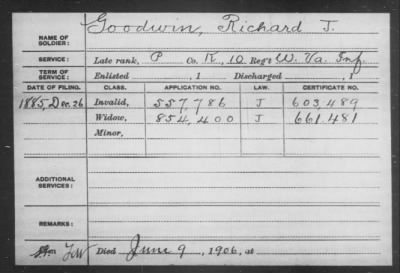 Goodwin, Richard T.
NAME OF SOLDIER:
SERVICE: Late rank, P Co. K, 10 Reg't W. Va. Inf.
TERM OF SERVICE: Enlisted , 1 Discharged , 1
DATE OF FILING. CLASS. APPLICATION NO. LAW. CERTIFICATE NO.
1885, Dec. 26 Invalid, 557,786 J 603,489
Widow, 854,400 J 661,481
Minor,
ADDITIONAL SERVICES:
REMARKS:
Died June 9, 1906, at